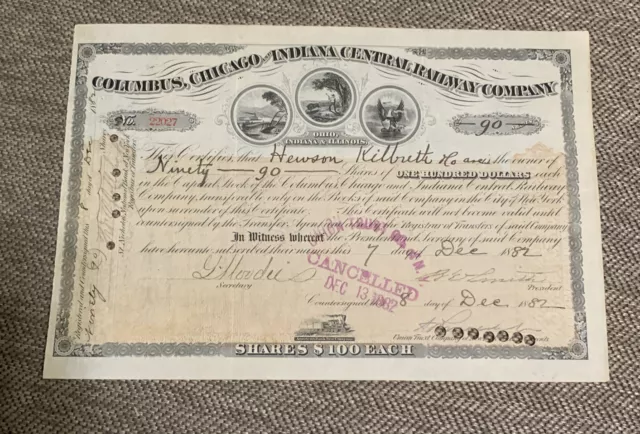 COLUMBUS, CHICAGO AND INDIANA CENTRAL RAILWAY COMPANY
No. 22027
90
OHIO,
INDIANA & ILLINOIS.
This Certifies, that Hewson Kilbreth & Co are the owner of
Ninety — 90 — Shares of ONE HUNDRED DOLLARS each
in the Capital Stock of the Columbus Chicago and Indiana Central Railway
Company, transferable only on the Books of said Company in the City of New York
upon surrender of this Certificate. This Certificate will not become valid until
countersigned by the Transfer Agent and by the Registrar of Transfers of said Company
In Witness whereof the President and Secretary of said Company
have hereunto subscribed their names this 7 day of Dec 1882
CANCELLED
DEC 13 1882
Secretary
B E Smith
President
Countersigned this 8 day of Dec 1882
SHARES $100 EACH
Ninety 90